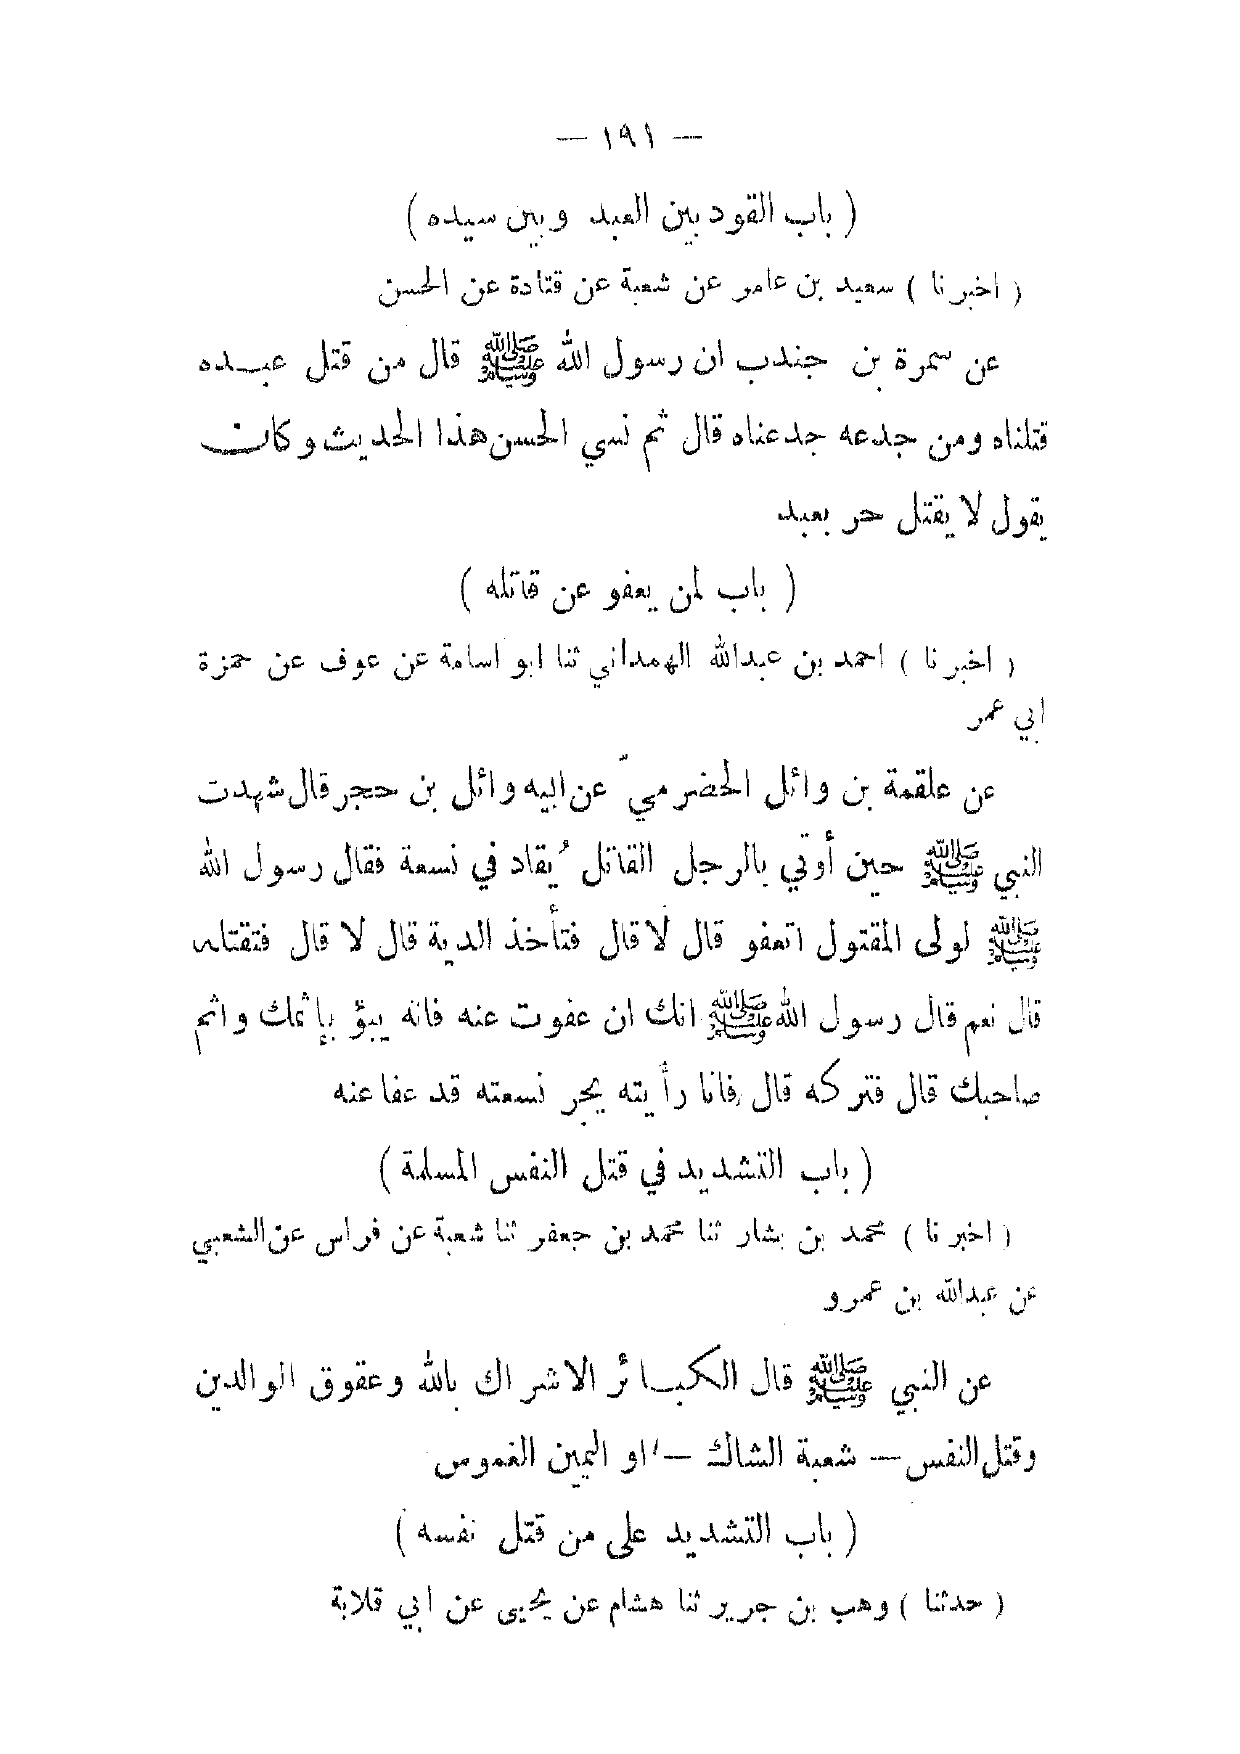 — ١٩١ —
( باب القود بين العبد وبين سيده )
( اخبرنا ) سعيد بن عامر عن شعبة عن قتادة عن الحسن
عن سمرة بن جندب ان رسول الله ﷺ قال من قتل عبــده
قتلناه ومن جدعه جدعناه قال ثم نسي الحسن هذا الحديث وكان
يقول لا يقتل حر بعبد
( باب لمن يعفو عن قاتله )
( اخبرنا ) احمد بن عبدالله الهمداني ثنا ابو اسامة عن عوف عن حمزة
ابي عمر
عن علقمة بن وائل الحضرميّ عن ابيه وائل بن حجر قال شهدت
النبي ﷺ حين أوتي بالرجل القاتل يُقاد في نسعة فقال رسول الله
ﷺ لولى المقتول اتعفو قال لا قال فتأخذ الدية قال لا قال فتقتله
قال نعم قال رسول الله ﷺ انك ان عفوت عنه فانه يبؤ بإثمك واثم
صاحبك قال فتركه قال فانا رأيته يجر نسعته قد عفا عنه
( باب التشديد في قتل النفس المسلمة )
( اخبرنا ) محمد بن بشار ثنا محمد بن جعفر ثنا شعبة عن فراس عن الشعبي
عن عبدالله بن عمرو
عن النبي ﷺ قال الكبــائر الاشراك بالله وعقوق الوالدين
وقتل النفس — شعبة الشاك — او اليمين الغموس
( باب التشديد على من قتل نفسه )
( حدثنا ) وهب بن جرير ثنا هشام عن يحيى عن ابي قلابة